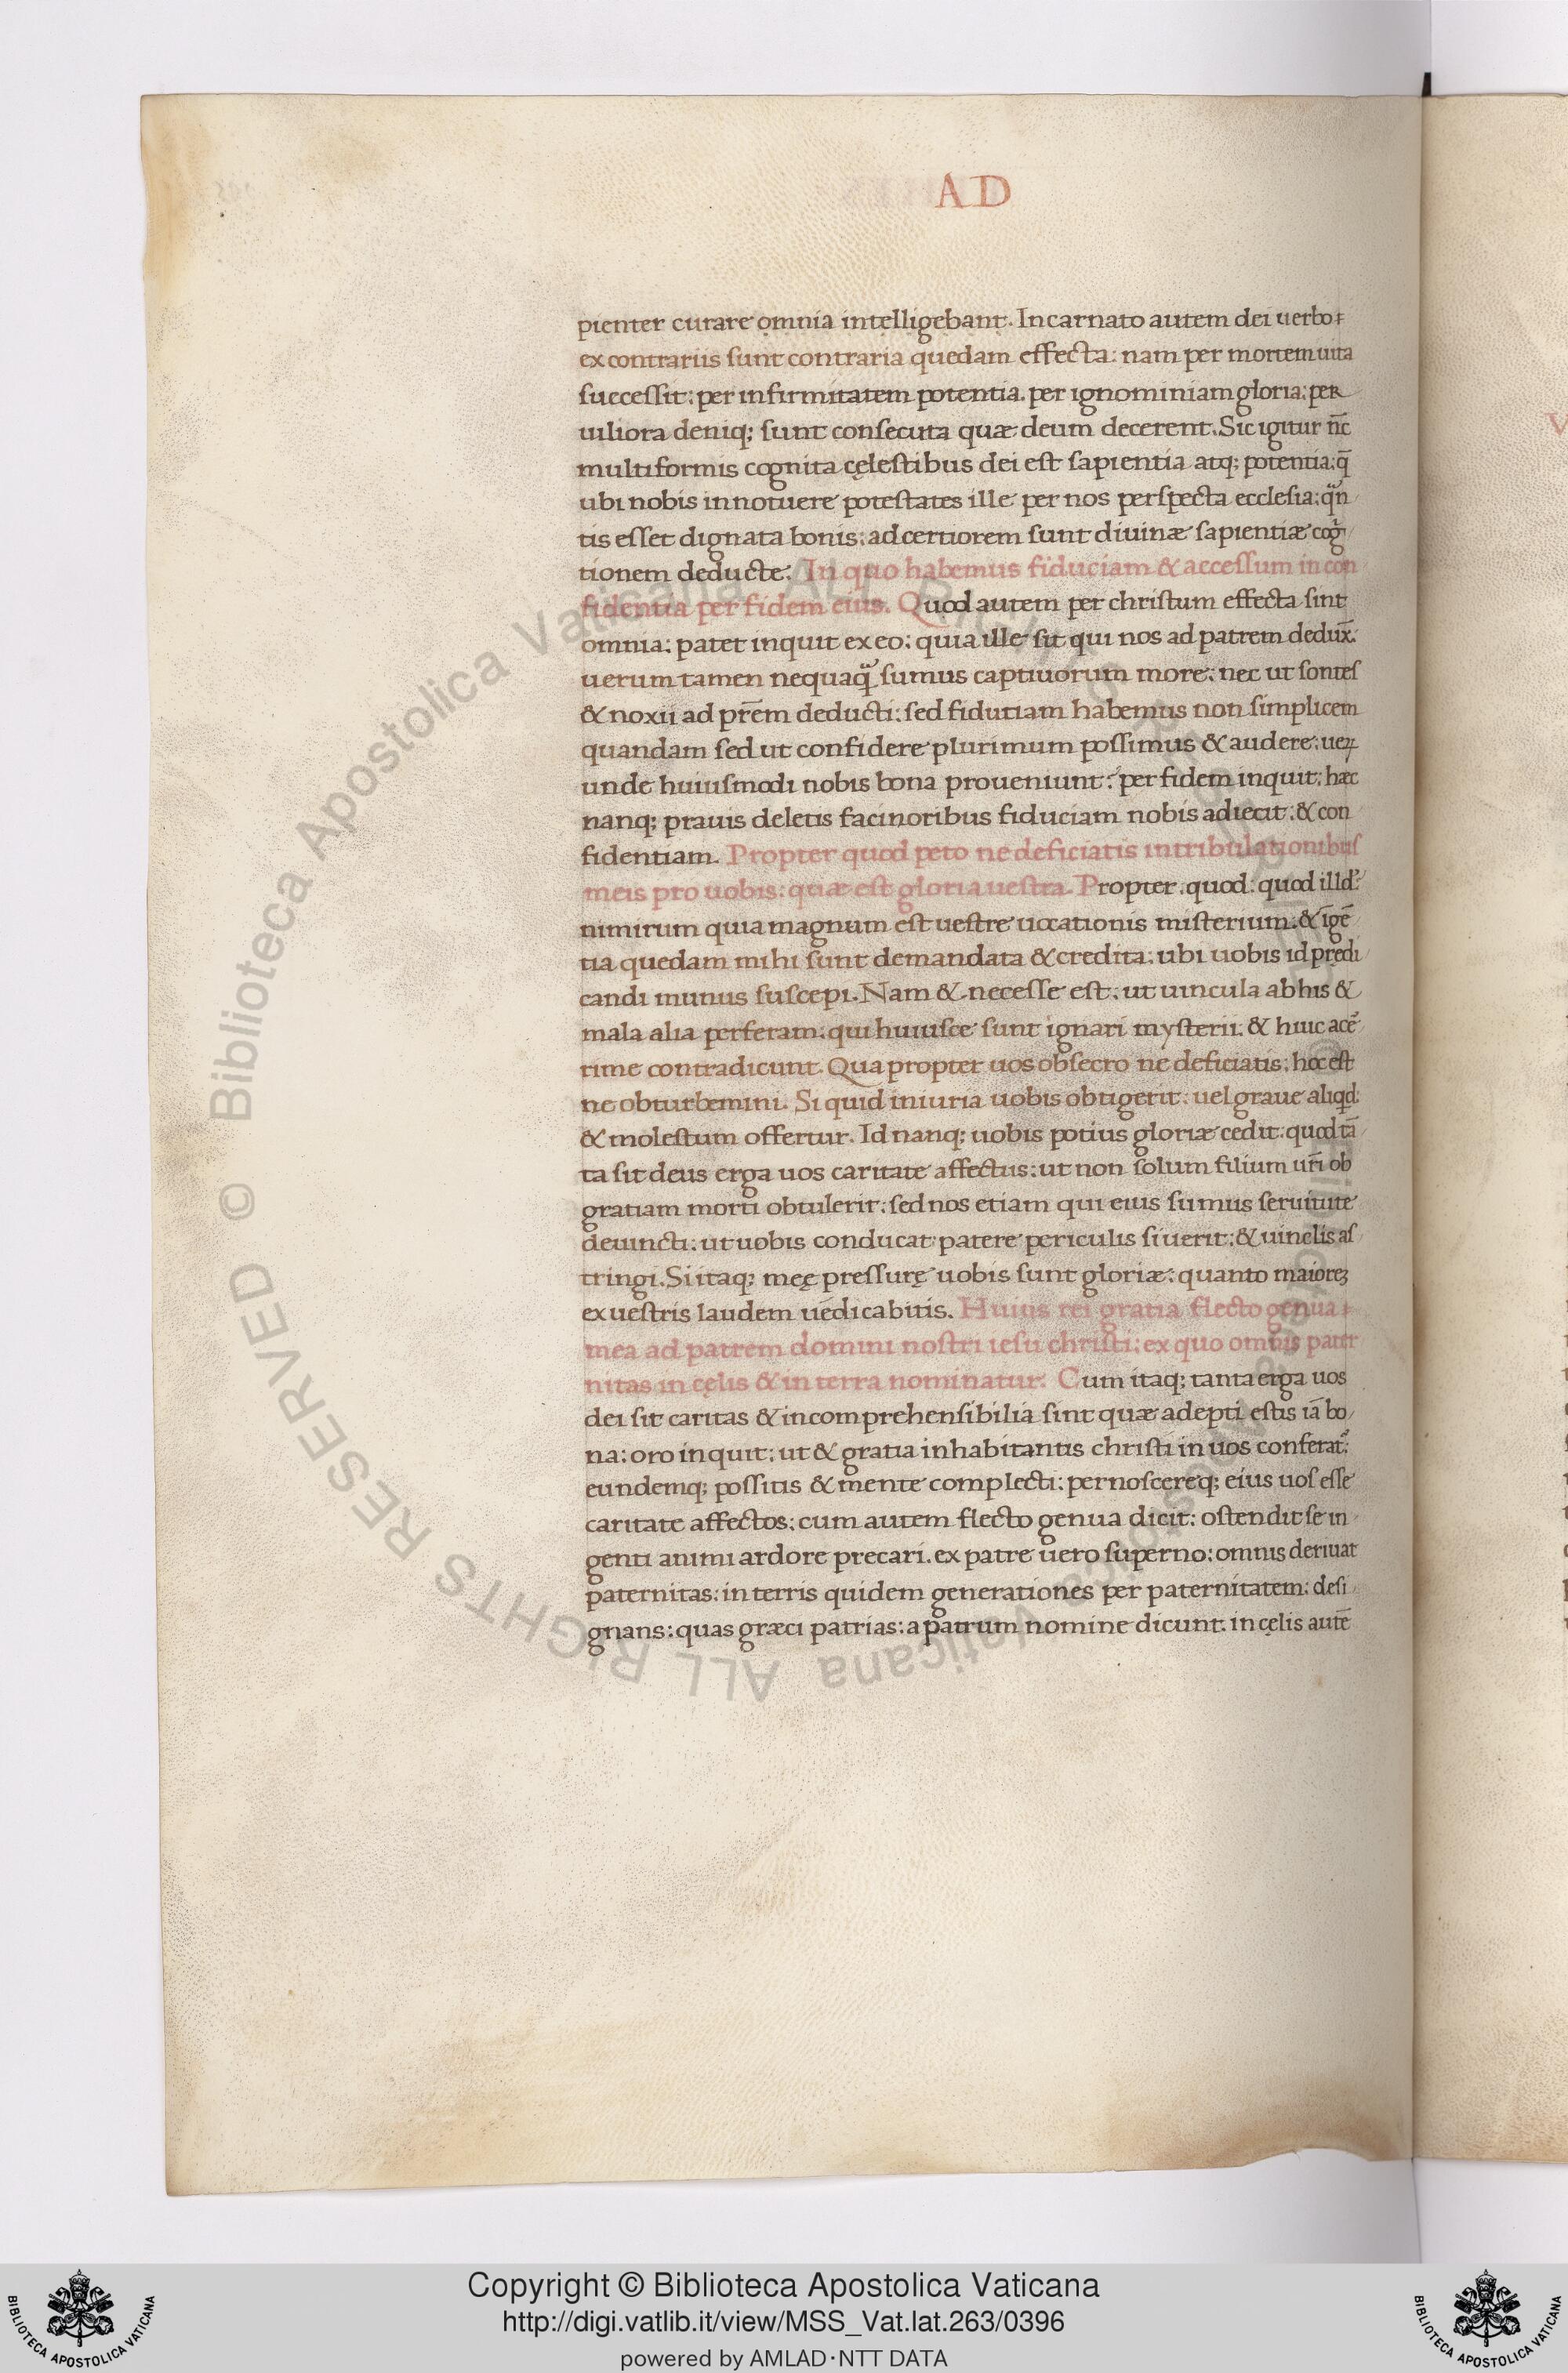 AD
pienter curare omnia intelligebant. Incarnato autem dei uerbo
ex contrariis sunt contraria quedam effecta: nam per mortem uita
successit: per infirmitatem potentia. per ignominiam gloria: per
uiliora deniq; sunt consecuta quæ deum decerent. Sic igitur nc̄
multiformis cognita cęlestibus dei est sapientia atq; potentia: q̄
ubi nobis innotuere potestates ille per nos perspecta ecclesia: quā
tis esset dignata bonis: ad certiorem sunt diuinæ sapientiæ cog
tionem deducte. In quo habemus fiduciam & accessum in con
fidentia per fidem eius. Quod autem per christum effecta sint
omnia: patet inquit ex eo: quia ille sit qui nos ad patrem dedux̄.
uerum tamen nequaq̄ sumus captiuorum more: nec ut sontes
& noxii ad pr̄em deducti: sed fidutiam habemus non simplicem
quandam sed ut confidere plurimum possimus & audere: ueꝝ
unde huiusmodi nobis bona proueniunt: per fidem inquit: hæc
nanq; prauis deletis facinoribus fiduciam nobis adiecit: & con
fidentiam. Propter quod peto ne deficiatis in tribulationibus
meis pro uobis: quæ est gloria uestra. Propter. quod: quod illd:
nimirum quia magnum est uestre uocationis misterium: & īgē
tia quedam mihi sunt demandata & credita: ubi uobis id prędi
candi munus suscepi. Nam & necesse est: ut uincula ab his &
mala alia perferam: qui huiusce sunt ignari mysterii: & huic acē
rime contradicunt. Qua propter uos obsecro ne deficiatis: hoc est
ne obturbemini. Si quid iniuria uobis obtigerit: uel graue aliqd:
& molestum offertur. Id nanq; uobis potius gloriæ cedit: quod tā
ta sit deus erga uos caritate affectus: ut non solum filium ur̄i ob
gratiam morti obtulerit: sed nos etiam qui eius sumus seruitute
deuincti: ut uobis conducat patere periculis siuerit: & uinclis as
tringi. Si itaq; meę pressurę uobis sunt gloriæ: quanto maiorez
ex uestris laudem uēdicabitis. Huius rei gratia flecto genua
mea ad patrem domini nostri iesu christi: ex quo omnis pater
nitas in cęlis & in terra nominatur. Cum itaq; tanta erga uos
dei sit caritas & incomprehensibilia sint quæ adepti estis iā bo
na: oro inquit: ut & gratia inhabitantis christi in uos conferat:
eundemq; possitis & mente complecti: pernoscereq; eius uos esse
caritate affectos: cum autem flecto genua dicit: ostendit se in
genti animi ardore precari. ex patre uero superno: omnis deriuat
paternitas: in terris quidem generationes per paternitatem: desi
gnans: quas græci patrias: a patrum nomine dicunt. in cęlis autē
© Biblioteca Apostolica Vaticana ALL RIGHTS RESERVED
Copyright © Biblioteca Apostolica Vaticana
http://digi.vatlib.it/view/MSS_Vat.lat.263/0396
powered by AMLAD·NTT DATA
BIBLIOTECA APOSTOLICA VATICANA
BIBLIOTECA APOSTOLICA VATICANA